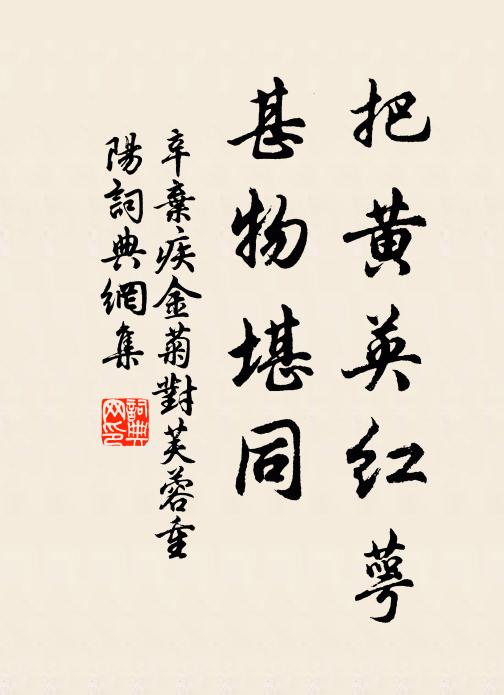 把黄英红萼
甚物堪同
辛棄疾金菊對芙蓉重
陽詞典網集
詞典网印